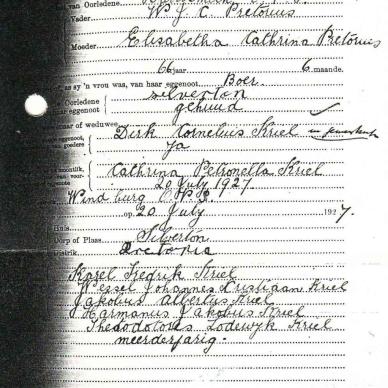 van Oorledene
Vader W. J. C. Pretorius
Moeder Elisabetha Cathrina Pretorius
66 jaar 6 maande.
as sy 'n vrou was, van haar eggenoot Boer
Silverton
Oorledene
eggenoot gehuud
of weduwee
Dirk Cornelius Kriel
goedere Ja
Cathrina Petronella Kriel
20 July 1927
Windburg
op 20 July 1927.
Huis
Dorp of Plaas Silverton
Pretoria
Karel Fredrik Kriel
Wessel Johannes Cristiaan Kriel
Jakobus Albertus Kriel
Harmanus Jakobus Kriel
Lodewyk Kriel
meerderjarig.